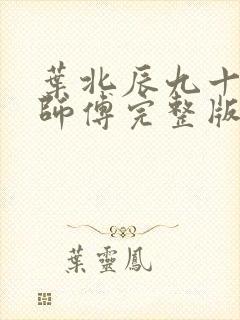 葉北辰九十
師傅完整版
葉靈鳳